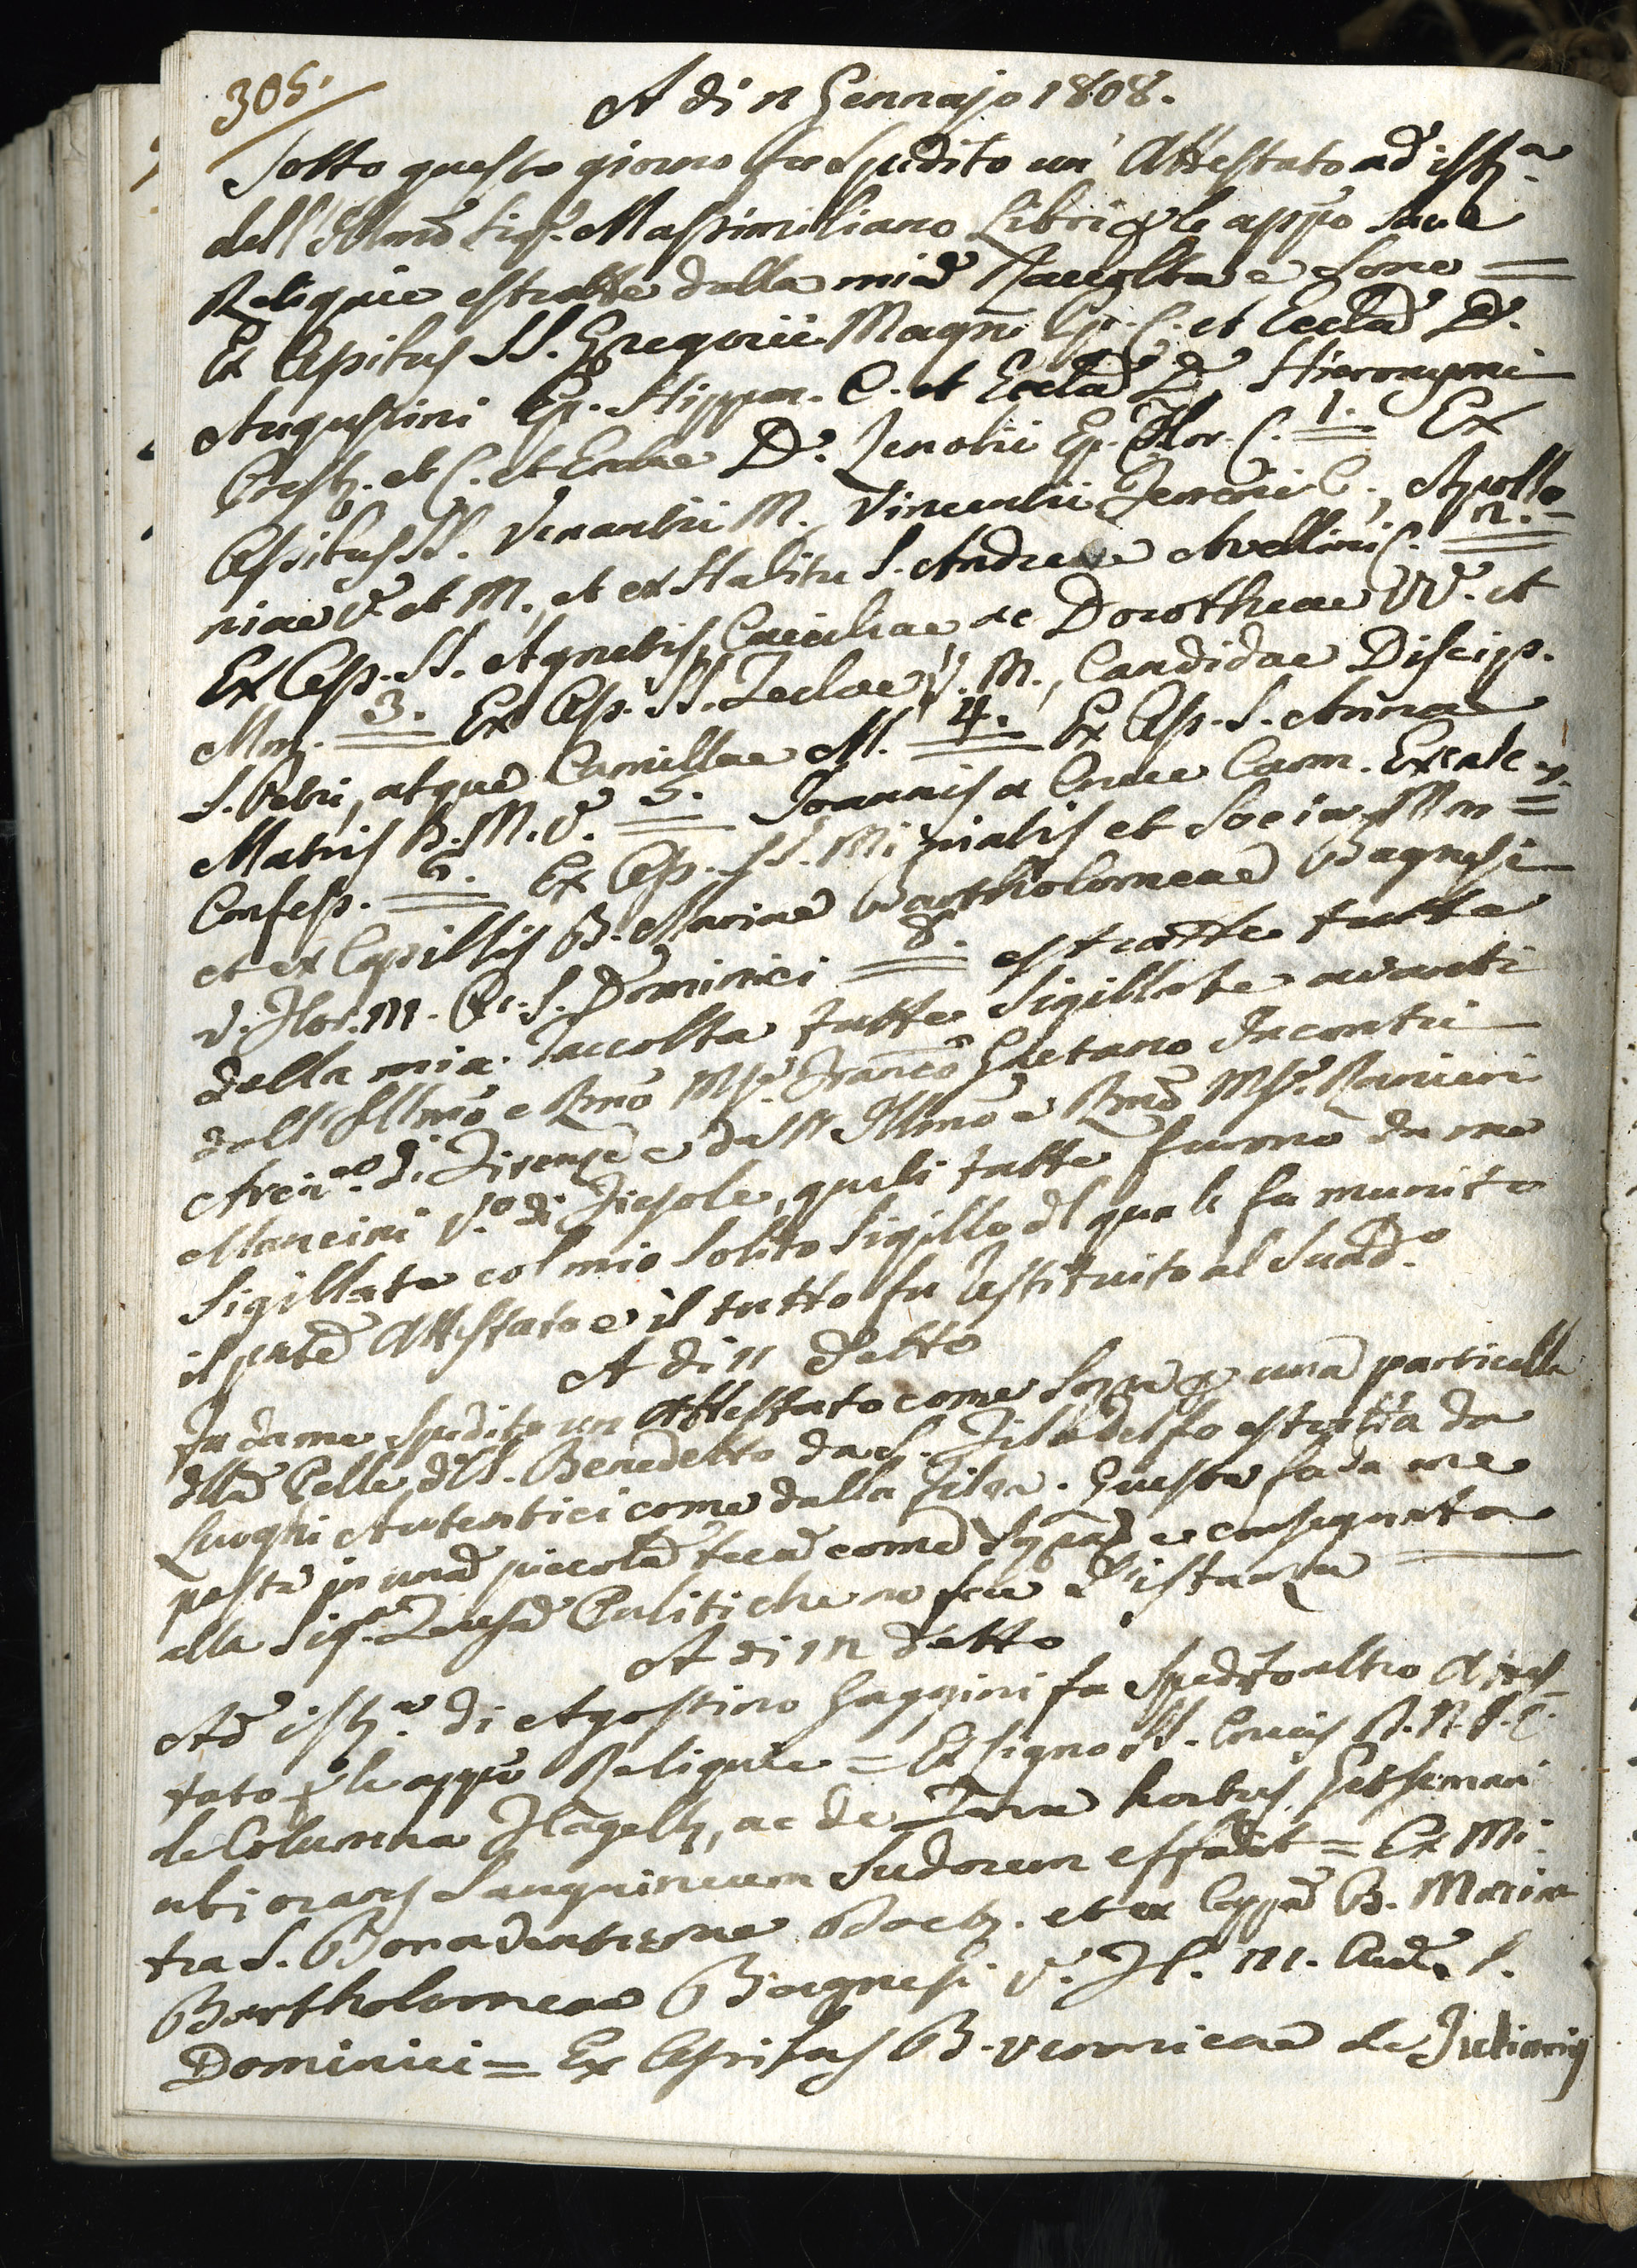 305.
A di 11 Gennajo 1808.
Sotto questo giorno fu spedito un' Attestato ad istz.a
dell' Illmo Sigr. Massimiliano Libri p le appo Sacre
Reliquie estratte dalla mia Raccolta e sono =
Ex Capsibus SS. Gregorii Magni Ep. C. et Eccla D.
Augustini Ep. Hippon. C. et Eccla D. Hieronymi
Presb. et C. et Eccla D. Zenobii Ep. Flor. C. 1. Ex
SS. Venantii M., Vincentii Ferrerii C., Apollo-
niae V. et M., et ex Halitu S. Andreae Avellini C. 2.
Ex SS. Agnetis, Caeciliae, ac Dorotheae VV. et
Mm. 3. Ex SS. Teclae V. M., Candidae Discip.
S. Petri, atque Camillae M. 4. Ex S. Annae
Matris B. M. V. 5. Joannis a Cruce Carm. Excalc.
Confess. 6. Ex SS. Miniatis et Socior. Mm =
et ex Capillis B. Mariae Bartholomeae Bagnesi
V. Flor. M. S. Dominici 8. estratte tutte
dalla mia raccolta tutte sigillate avanti
dall' Illmo e Rmo Mr. Franco Gaetano Incontri
Arciv.o di Firenze e dall' Illmo e Rmo Mr. Ranieri
Mancini V.o di Fiesole, quali tutte furno da me
Sigillate col mio solito Sigillo del quale fu munito
il pnte Attestato e il tutto fu restituito al Sudd.o
A di 11 detto
Fu da me spedito un Attestato come sopra p una particella
della Pelle di S. Benedetto da S. Filadelfo estratta da
Luoghi Autentici come dalla Filza. Questa fu da me
posta in una piccola teca come sopra e consegnata
alla Sigra. Teresa Puliti che ne fece l'istanza
A di 12 detto
Ad istz.a di Agostino Gaggini fu spedito altro Attes
tato p le appo Reliquie = Ex Ligno SS. Crucis D. N. J. C.
de Columna Flagell., ac de Terra hortus Getsemani
ubi orans Sanguineum Sudorem effudit = Ex Mi
tra S. Bonaventurae et ex Capp. B. Maria
Bartholomeae Bagnesi V. Fl. M. S.
Dominici = Ex B. Veronicae de Julianis